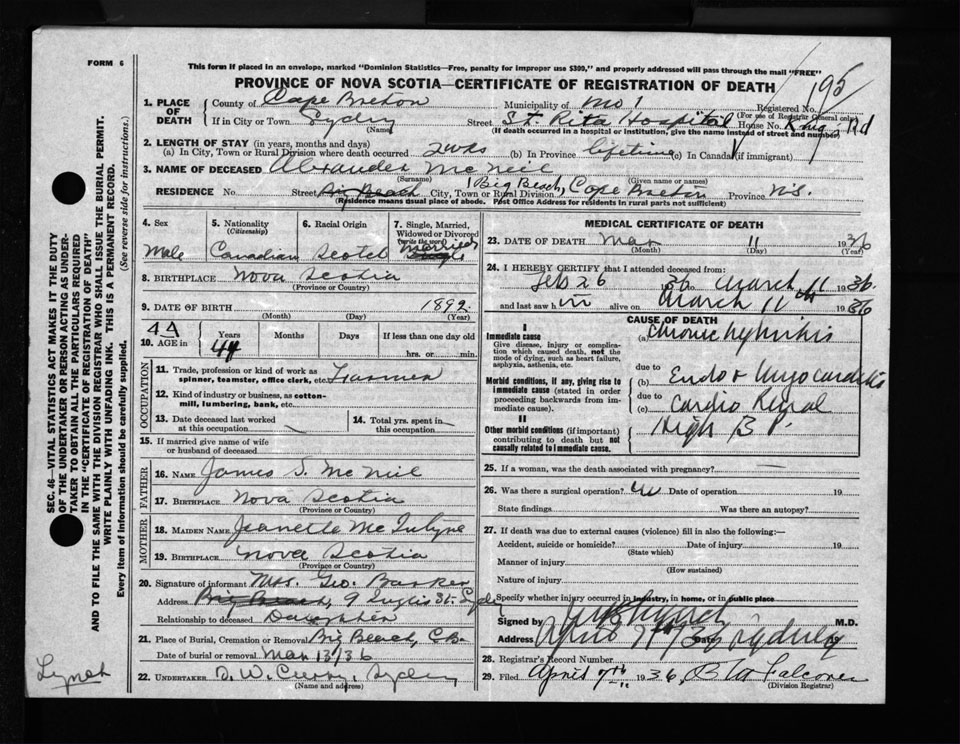 FORM 6
This form if placed in an envelope, marked "Dominion Statistics—Free, penalty for improper use $300," and properly addressed will pass through the mail "FREE"
PROVINCE OF NOVA SCOTIA—CERTIFICATE OF REGISTRATION OF DEATH
195
1. PLACE OF DEATH
County of Cape Breton Municipality of No 1 Registered No.
(For use of Registrar General only)
If in City or Town Sydney Street St. Rita Hospital House No. King Rd
(Name) (If death occurred in a hospital or institution, give the name instead of street and number)
2. LENGTH OF STAY (in years, months and days)
(a) In City, Town or Rural Division where death occurred 2 wks (b) In Province lifetime (c) In Canada (if immigrant)
3. NAME OF DECEASED Alexander McNeil
(Surname) (Given name or names)
RESIDENCE No. Street Big Beach City, Town or Rural Division Big Beach, Cape Breton Province N.S.
(Residence means usual place of abode. Post Office Address for residents in rural parts not sufficient)
4. Sex Male
5. Nationality (Citizenship) Canadian
6. Racial Origin Scotch
7. Single, Married, Widowed or Divorced (write the word) Married
8. BIRTHPLACE Nova Scotia
(Province or Country)
9. DATE OF BIRTH 1892
(Month) (Day) (Year)
44
10. AGE in Years 44 Months Days If less than one day old
hrs. or min.
OCCUPATION
11. Trade, profession or kind of work as spinner, teamster, office clerk, etc. Farmer
12. Kind of industry or business, as cotton-mill, lumbering, bank, etc.
13. Date deceased last worked at this occupation
14. Total yrs. spent in this occupation
15. If married give name of wife or husband of deceased
FATHER
16. NAME James S. McNeil
17. BIRTHPLACE Nova Scotia
(Province or Country)
MOTHER
18. MAIDEN NAME Jeanette Mc
19. BIRTHPLACE Nova Scotia
(Province or Country)
20. Signature of informant Mrs. Geo. Barker
Address Big Beach, 9 Inglis St. Sydney
Relationship to deceased Daughter
21. Place of Burial, Cremation or Removal Big Beach, C.B.
Date of burial or removal Mar 13/36
22. UNDERTAKER D. W. Curry, Sydney
(Name and address)
MEDICAL CERTIFICATE OF DEATH
23. DATE OF DEATH Mar 11 1936
(Month) (Day) (Year)
24. I HEREBY CERTIFY that I attended deceased from:
Feb 26 36 to March 11 1936
and last saw him alive on March 11th 1936
CAUSE OF DEATH
I
Immediate cause
Give disease, injury or complication which caused death, not the mode of dying, such as heart failure, asphyxia, asthenia, etc.
(a) Chronic Nephritis
due to
Morbid conditions, if any, giving rise to immediate cause (stated in order proceeding backwards from immediate cause).
(b) Endo & Myocarditis
due to
(c) Cardio Renal
II
Other morbid conditions (if important) contributing to death but not causally related to immediate cause.
High B P.
25. If a woman, was the death associated with pregnancy?
26. Was there a surgical operation? Date of operation 19
State findings Was there an autopsy?
27. If death was due to external causes (violence) fill in also the following:—
Accident, suicide or homicide? Date of injury 19
(State which)
Manner of injury
(How sustained)
Nature of injury
Specify whether injury occurred in industry, in home, or in public place
Signed by M.D.
Address Date Sydney 19
April 7th/36
28. Registrar's Record Number
29. Filed April 7th 1936, Falconer
(Division Registrar)
SEC. 46—VITAL STATISTICS ACT MAKES IT THE DUTY
OF THE UNDERTAKER OR PERSON ACTING AS UNDER-
TAKER TO OBTAIN ALL THE PARTICULARS REQUIRED
IN THE "CERTIFICATE OF REGISTRATION OF DEATH"
AND TO FILE THE SAME WITH THE DIVISION REGISTRAR WHO SHALL ISSUE THE BURIAL PERMIT.
WRITE PLAINLY WITH UNFADING INK. THIS IS A PERMANENT RECORD.
Every item of information should be carefully supplied. (See reverse side for instructions.)
Lynch